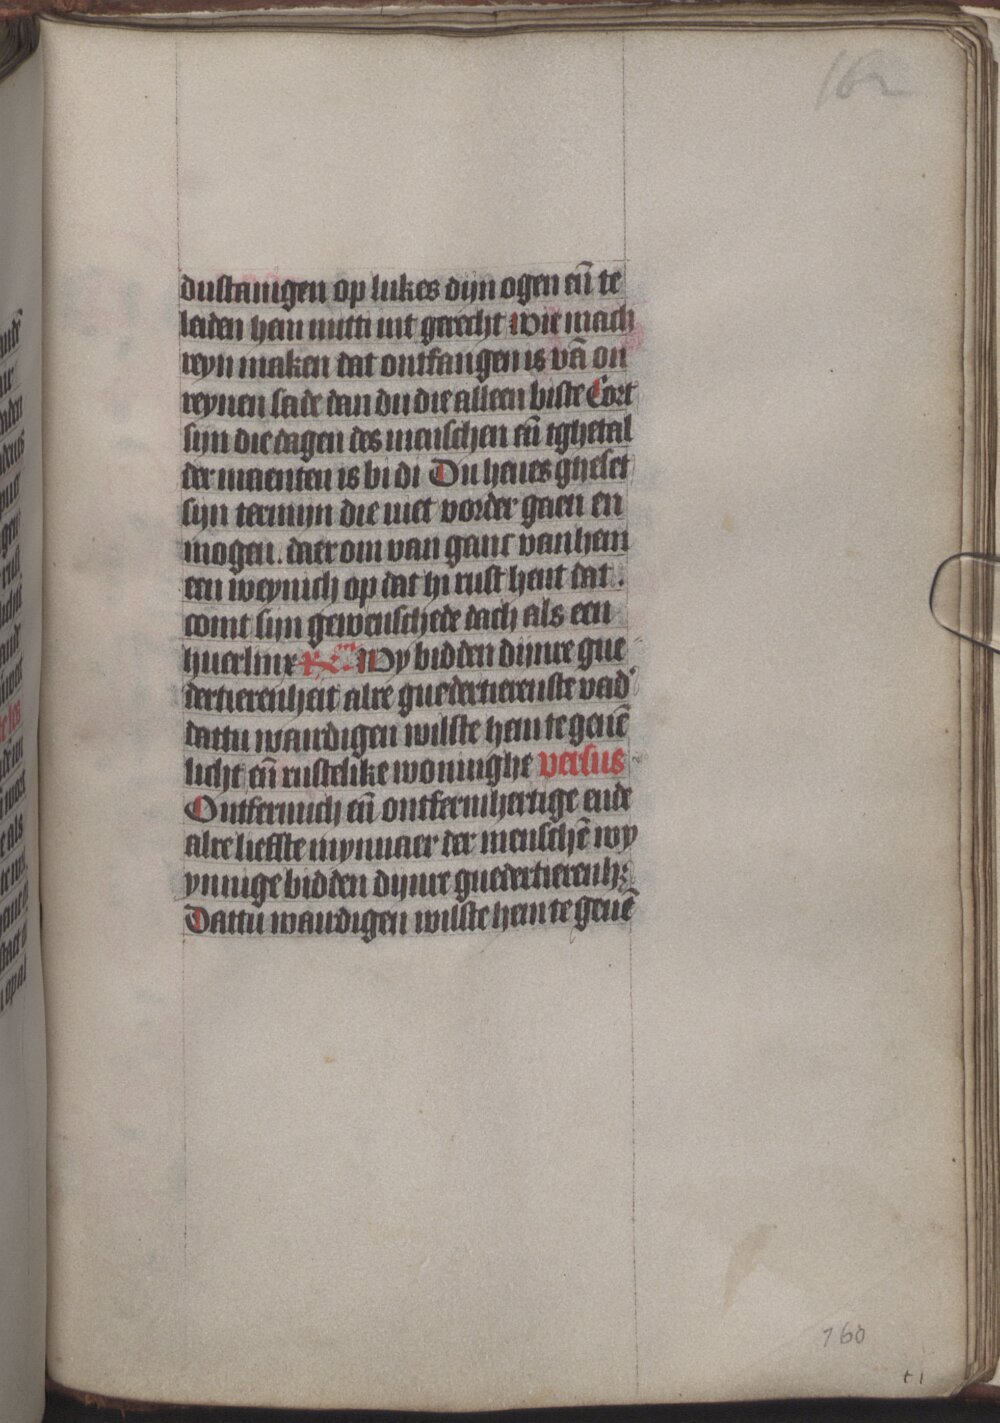 162
dustanigen op lukes dijn ogen eñ te
leiden hem mitti int gerecht wie mach
reyn maken dat ontfangen is vā on
reynen sade dan du die alleen biste Cort
sijn die dagen des menschen eñ tghetal
der maenten is bi di Du heues gheset
sijn termijn die niet vorder gaen en
mogen. daer om van ganc van hem
een weynich op dat hi rust hent dat.
comt sijn gewenschede dach als een
huerlinx R Wy bidden dijnre gue
dertierenheit alre guedertierenste vad'
dattu waerdigen wilste hem te geuē
licht eñ rustelike woninghe versus
Ontfermich eñ ontfermhertige ende
alre liefste mynnaer der menschē wy
ynnige bidden dijnre guedertierenh
Dattu waudigen wilste hem te geuē
160
t 1